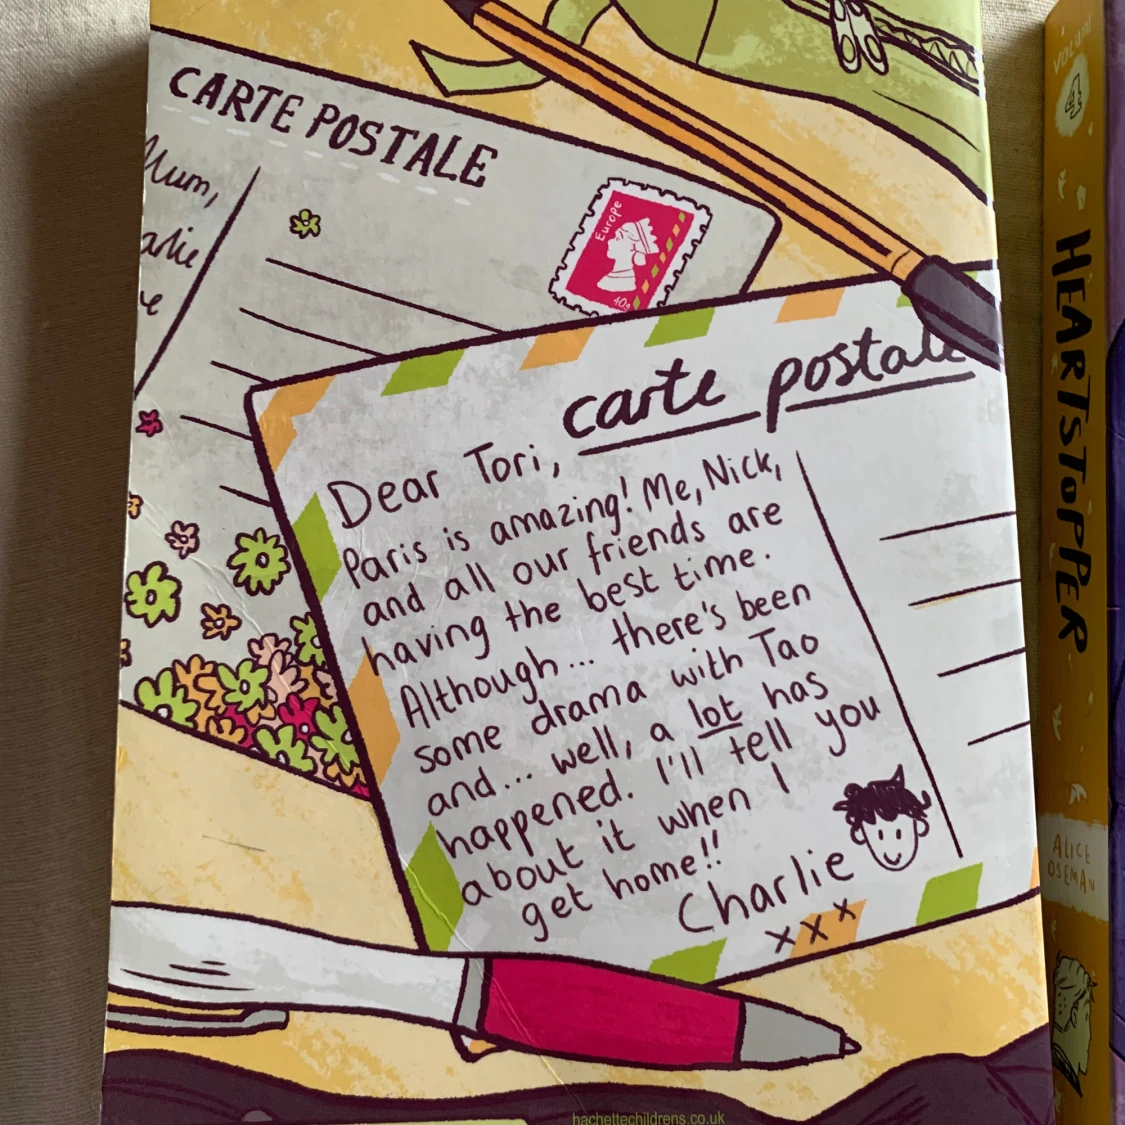 CARTE POSTALE
Mum,
Europe
carte postale
Dear Tori,
Paris is amazing! Me, Nick,
and all our friends are
having the best time.
Although... there's been
some drama with Tao
and... well, a lot has
happened. I'll tell you
about it when I
get home!!
Charlie
xxx
hachettechildrens.co.uk
VOLUME
4
HEARTSTOPPER
ALICE
OSEMAN